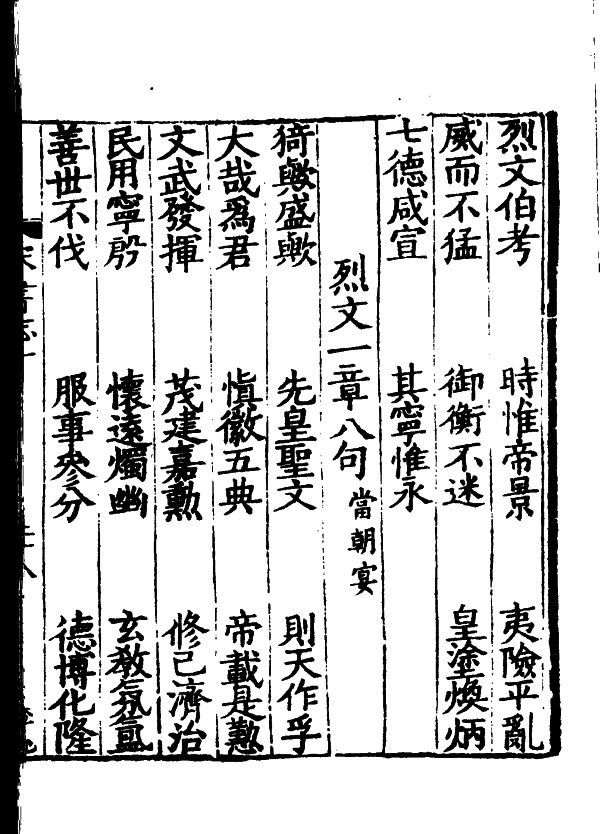 烈文伯考　時惟帝景　夷險平亂
威而不猛　御衡不迷　皇塗煥炳
七德咸宣　其寧惟永
烈文一章八句當朝宴
猗歟盛歟　先皇聖文　則天作孚
大哉爲君　愼徽五典　帝載是懃
文武發揮　茂建嘉勳　修己濟治
民用寧殷　懷遠燭幽　玄敎氛氳
善世不伐　服事叅分　德博化隆